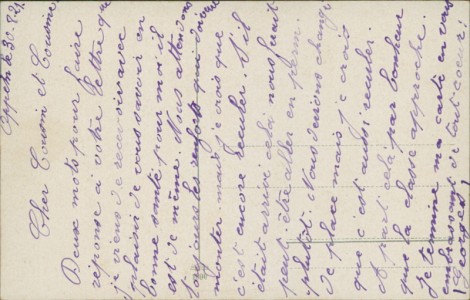 Eppen le 30.8.29.
Cher Cousin et Cousine,
Deux mots pour faire
réponse à votre lettre que
je viens de recevoir avec
plaisir de vous savoir en
bonne santé pour moi il
est de même. Nous attendons
toujours les renforts qui doivent
monter mais je crois que
c'est encore reculer. S'il
était arrivé cela nous ferait
peut-être aller en perm.
plutôt. Nous devions changer
de place mais je crois
que c'est aussi reculer.
A part cela par bonheur
que la classe approche.
Je termine ma carte en vous
embrassant de tout cœur.
Georges